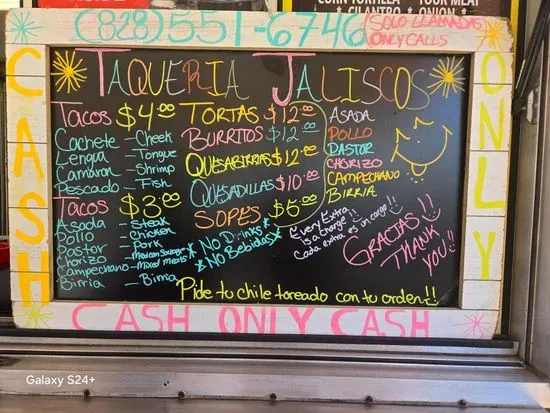 CORN TORTILLA YOUR MEAT
* CILANTRO * ONION *
(828)551-6746 (SOLO LLAMADAS
ONLY CALLS
CASH
ONLY
TAQUERIA JALISCOS
Tacos $4.00
Cachete - Cheek
Lengua - Tongue
Camaron - Shrimp
Pescado - Fish
Tacos $3.00
Asada - Steak
Pollo - Chicken
Pastor - Pork
Chorizo - Mexican Sausage
Campechano - Mixed Meats
Birria - Birria
TORTAS $12.00
BURRITOS $12.00
QUESABIRRIAS $12.00
QUESADILLAS $10.00
SOPES $5.00
* NO Drinks *
* NO Bebidas *
ASADA
POLLO
PASTOR
CHORIZO
CAMPECHANO
BIRRIA
Every Extra
is a charge!!
Cada extra es un cargo!!
GRACIAS!!
THANK
YOU!!
Pide tu chile toreado con tu orden!!
CASH ONLY CASH
Galaxy S24+